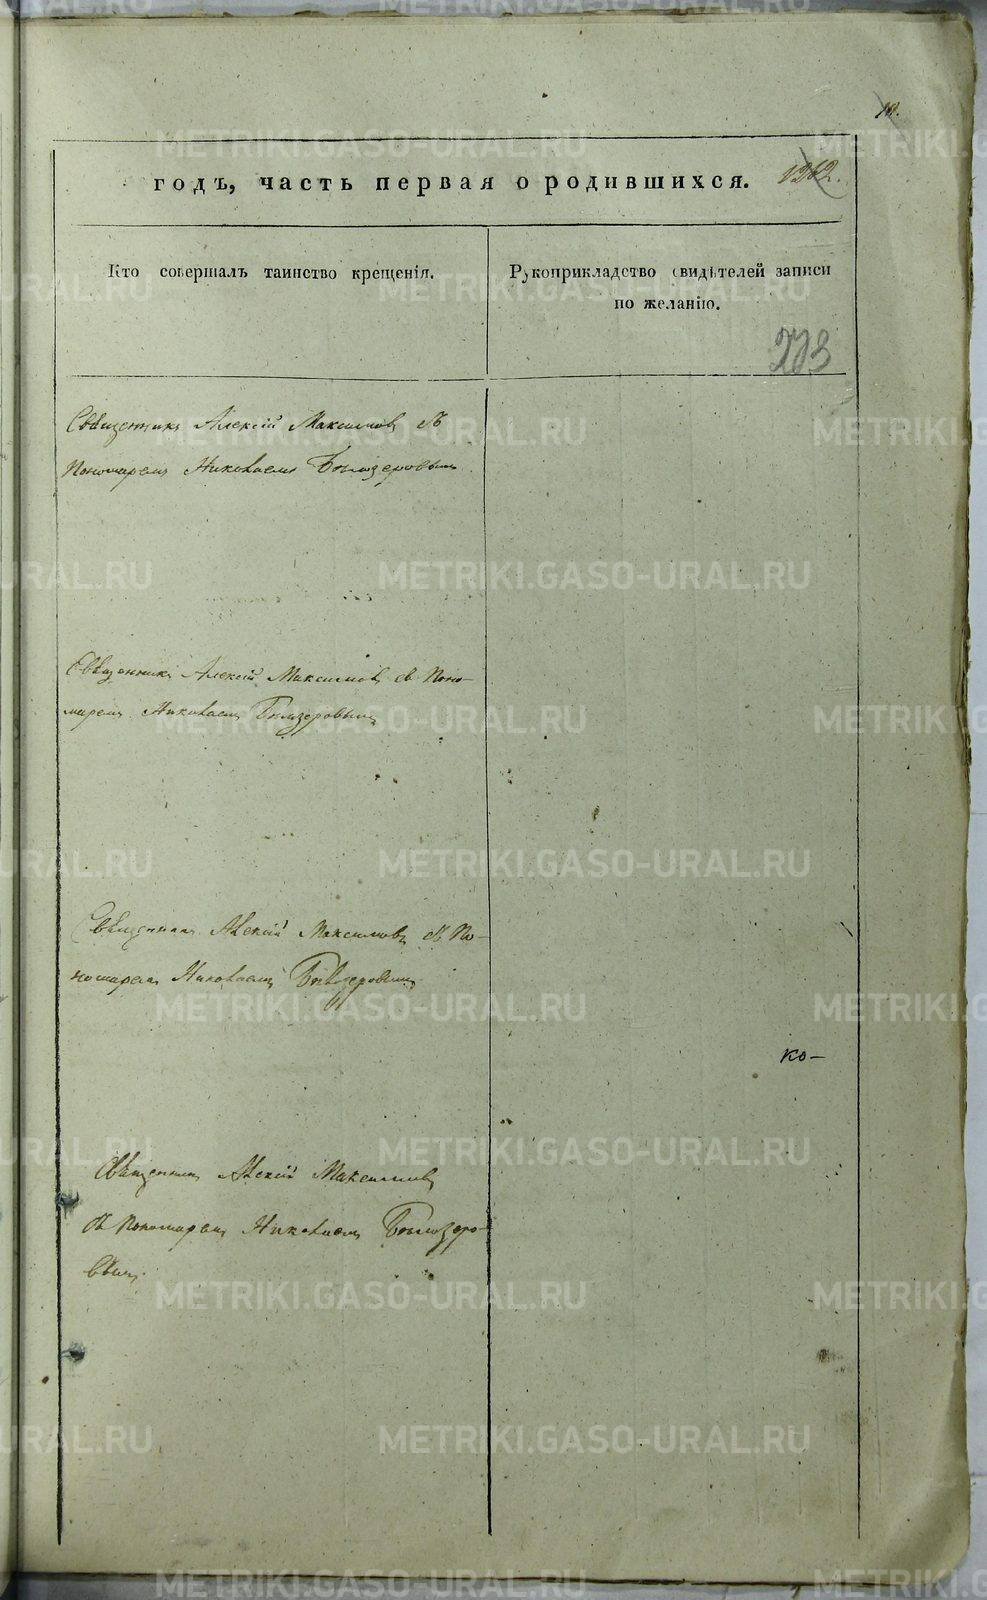 10.
годъ, часть первая о родившихся. 1212.
Кто совершалъ таинство крещенія.
Рукоприкладство свидѣтелей записи
по желанію.
Священникъ Алексій Максимовъ съ
Пономаремъ Николаемъ Бѣлозеровымъ
Священникъ Алексій Максимовъ съ Поно-
маремъ Николаемъ Бѣлозеровымъ
Священникъ Алексій Максимовъ съ По-
номаремъ Николаемъ Бѣлозеровымъ
ко-
Священникъ Алексій Максимовъ
съ Пономаремъ Николаемъ Бѣлозеро-
вымъ
METRIKI.GASO-URAL.RU